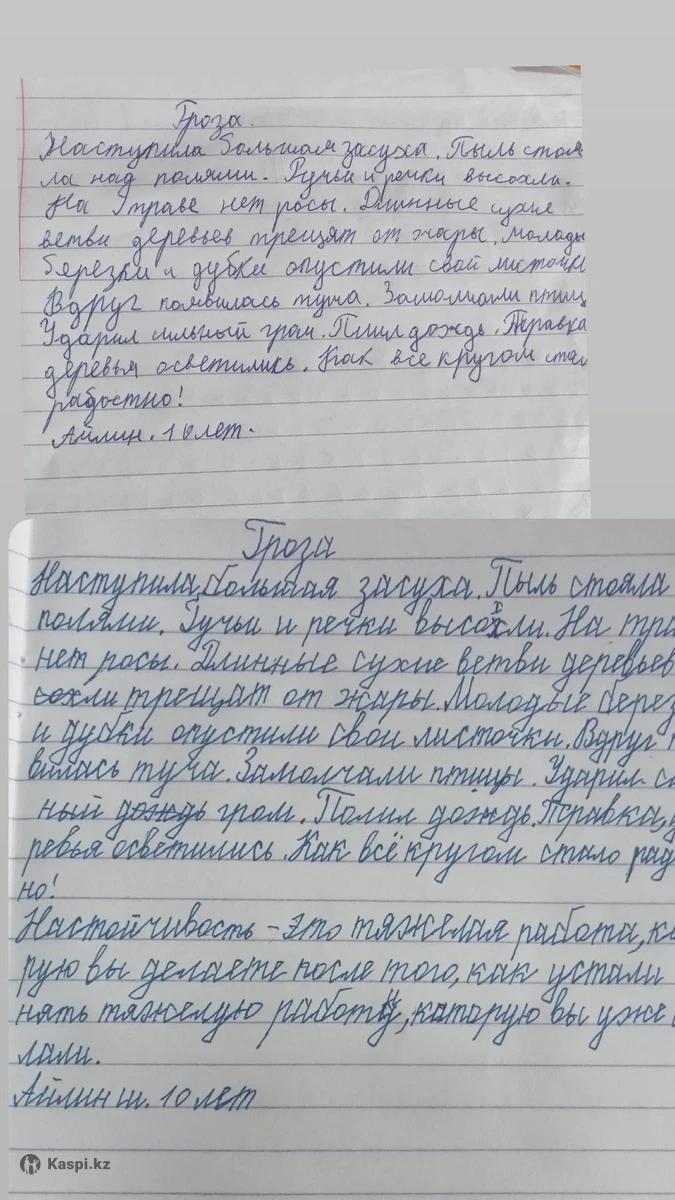 Гроза.
Наступила большая засуха. Пыль стоя
ла над полями. Ручьи и речки высохли.
На траве нет росы. Длинные сухие
ветви деревьев трещят от жары. Молоды
березки и дубки опустили свои листочки
Вдруг появилась туча. Замолчали птиц
Ударил сильный гром. Пшил дождь. Травка
деревья осветились. Как все кругом стал
радостно!
Айлин. 10 лет.
Гроза
Наступила, большая засуха. Пыль стояла
полями. Ручьи и речки высохли. На тра
нет росы. Длинные сухие ветви деревьев
сохли трещат от жары. Молодые берез
и дубки опустили свои листочки. Вдруг п
вилась туча. Замолчали птицы. Ударил с
ный дождь гром. Полил дождь. Травка, д
ревья осветились. Как всё кругом стало рад
но!
Настойчивость - это тяжелая работа, ко
рую вы делаете после того, как устали
нять тяжелую работу, которую вы уже
лали.
Айлин ш. 10 лет
Kaspi.kz